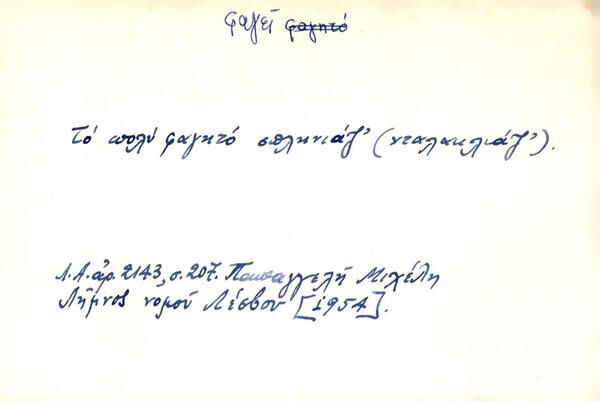 φαγεῖ φαγητό
Τό πολύ φαγητό σπληνιάζ' (νταλακλιάζ').
Λ.Α. ἀρ. 2143, σ. 207. Παπαγγελή Μιχέλη
Λῆμνος νομοῦ Λέσβου [1954].